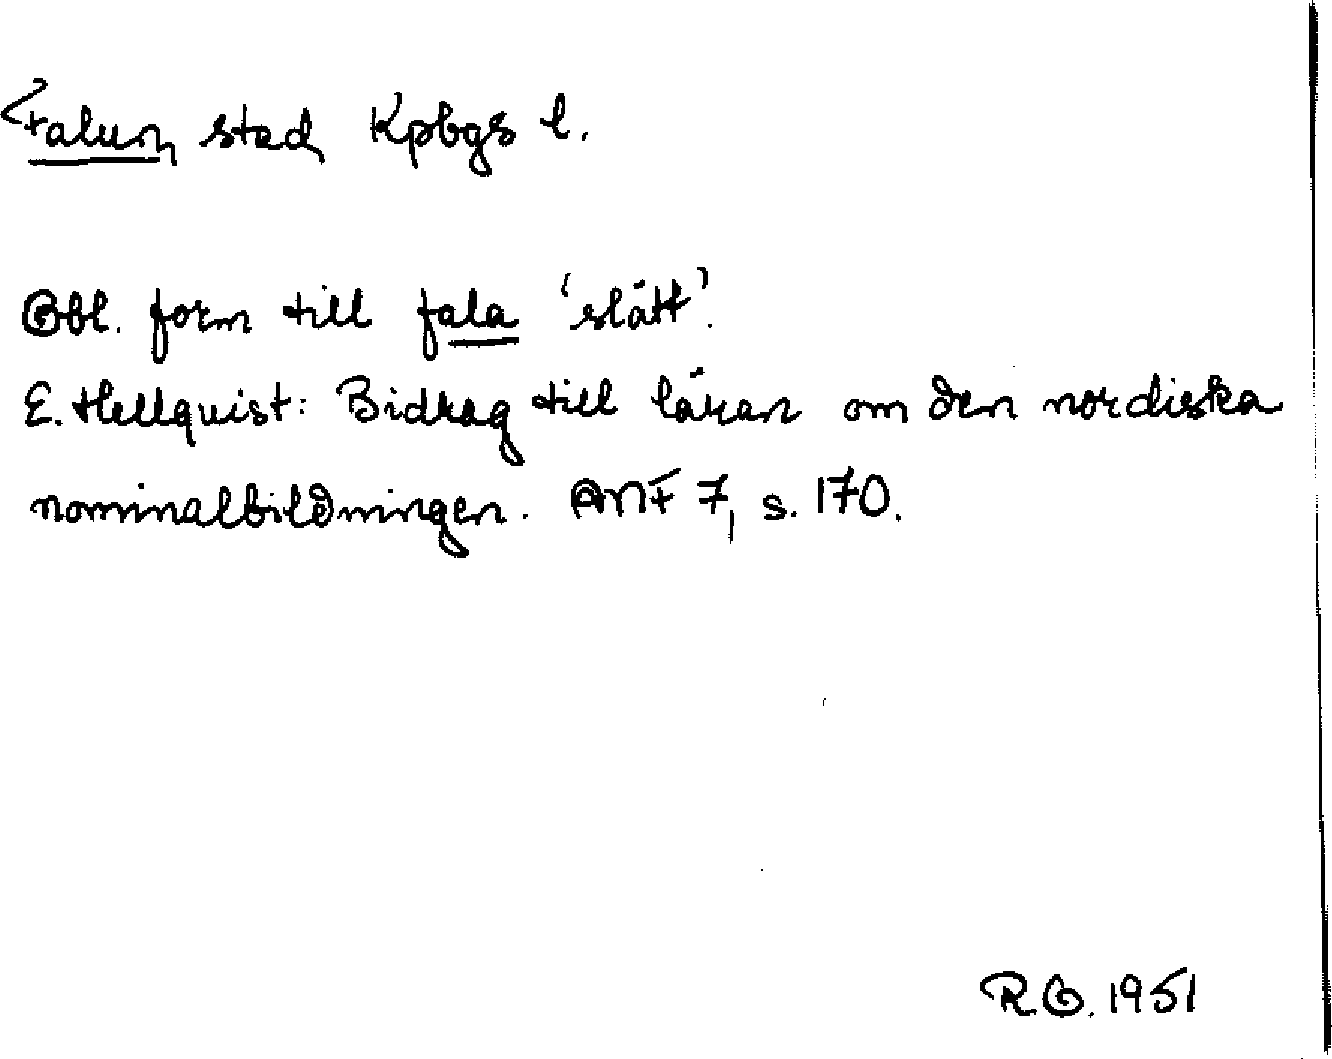 Falun stad Kpbgs l.
Obl. form till fala 'slätt'.
E. Hellquist: Bidrag till läran om den nordiska
nominalbildningen. ANF 7, s. 170.
R.O. 1951